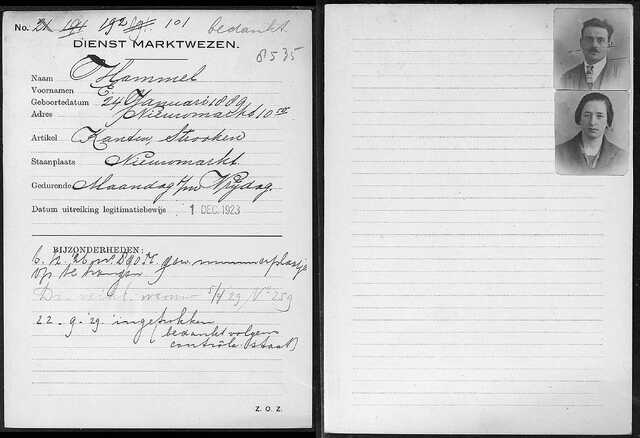 No. 21 191 192 101 bedankt.
DIENST MARKTWEZEN.
8535
Naam Hammel
Voornamen E.
Geboortedatum 24 Januari 1889
Adres Nieuwmarkt 10
Artikel Kanten, Strooken
Staanplaats Nieuwmarkt.
Gedurende Maandag t/m Vrijdag.
Datum uitreiking legitimatiebewijs 1 DEC. 1923
BIJZONDERHEDEN:
nummerplaatje
op te hangen
22-9-'29. ingetrokken
(bedankt volgens
contrôle staat)
Z. O. Z.